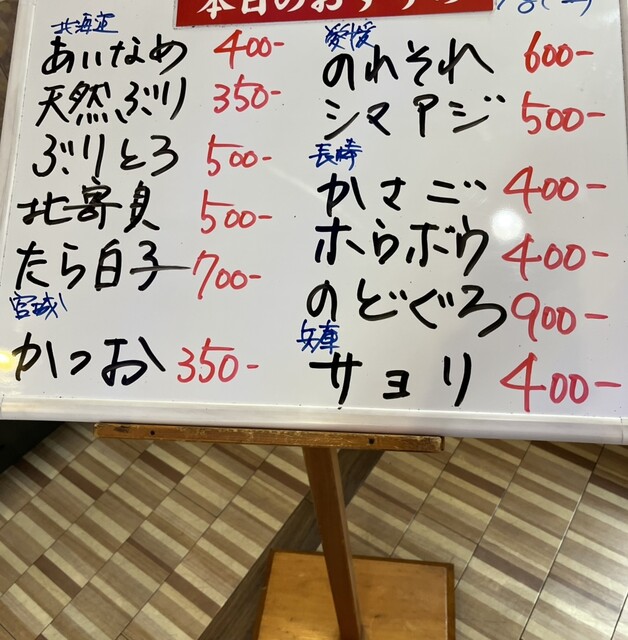 本日のおすすめ
北海道
あいなめ 400-
天然ぶり 350-
ぶりとろ 500-
北寄貝 500-
たら白子 700-
宮城
かつお 350-
愛媛
のれそれ 600-
シマアジ 500-
長崎
かさご 400-
ホウボウ 400-
のどぐろ 900-
兵庫
サヨリ 400-